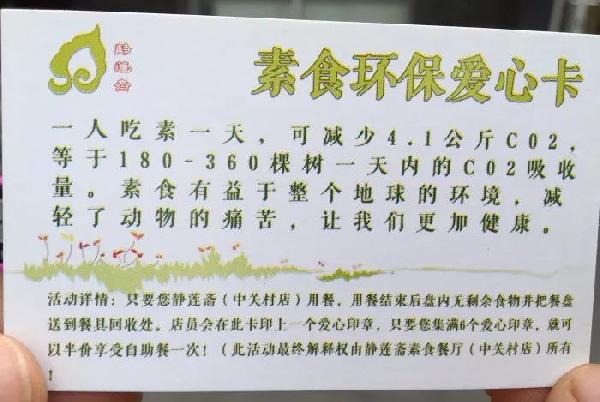 静莲斋
素食环保爱心卡
一人吃素一天，可减少4.1公斤CO2，
等于180-360棵树一天内的CO2吸收
量。素食有益于整个地球的环境，减
轻了动物的痛苦，让我们更加健康。
活动详情：只要您静莲斋（中关村店）用餐，用餐结束后盘内无剩余食物并把餐盘
送到餐具回收处。店员会在此卡印上一个爱心印章，只要您集满6个爱心印章，就可
以半价享受自助餐一次！（此活动最终解释权由静莲斋素食餐厅（中关村店）所有
！